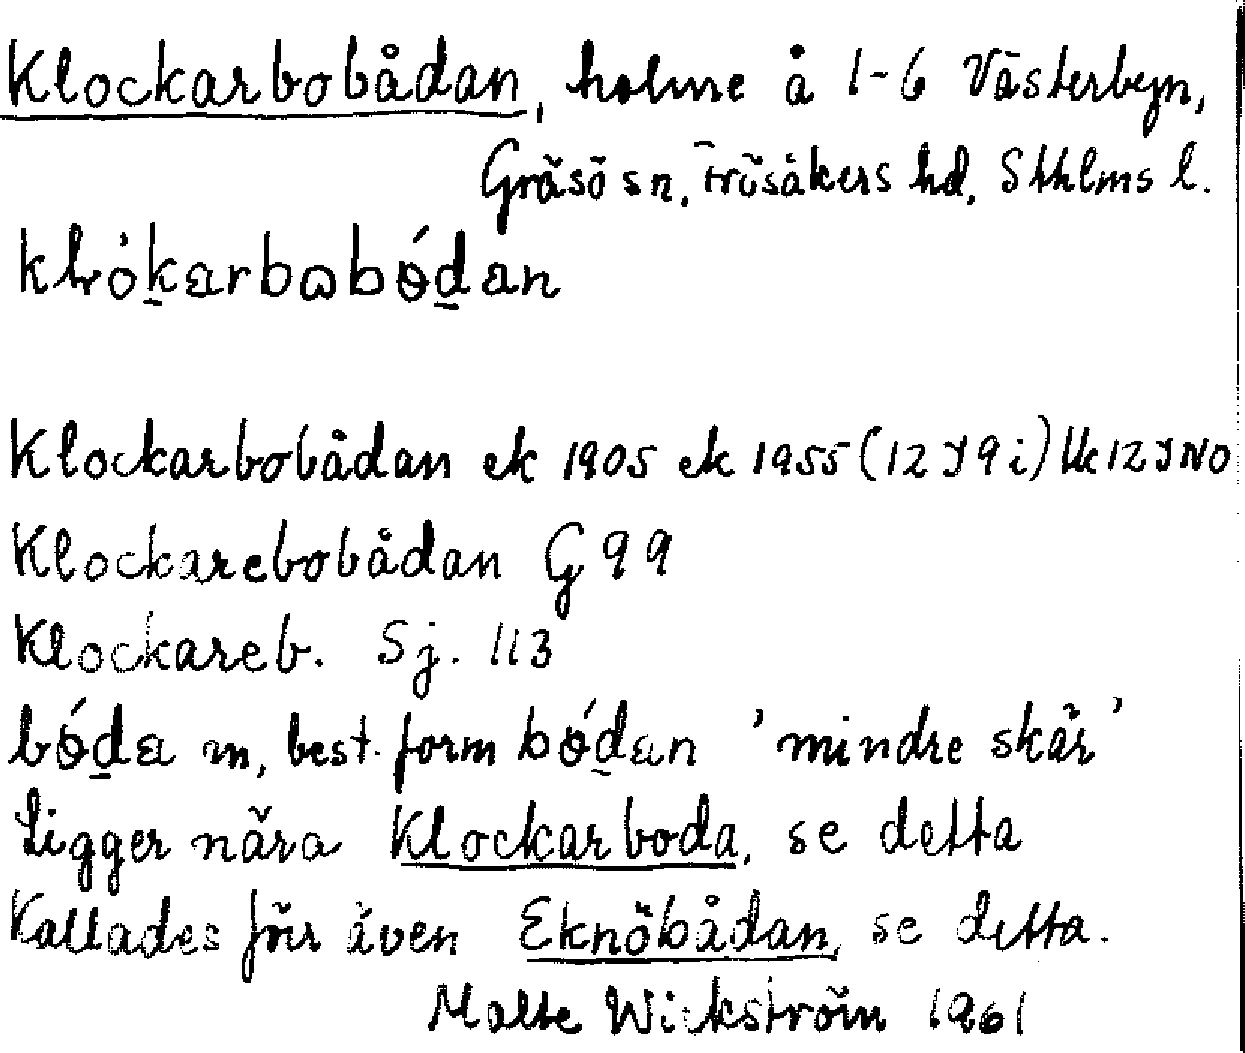 Klockarbobådan, holme å 1-6 Västerbyn,
Gräsö sn, Frösåkers hd, Sthlms l.
Klockarbobådan ek 1905 ek 1955 (12 J 9 i) Uk 12 J NO
Klockarebobådan G 99
Klockareb. Sj. 113
m, best. form 'mindre skär'
Ligger nära Klockarboda, se detta
Kallades förr även Eknöbådan, se detta.
Malte Wickström 1961